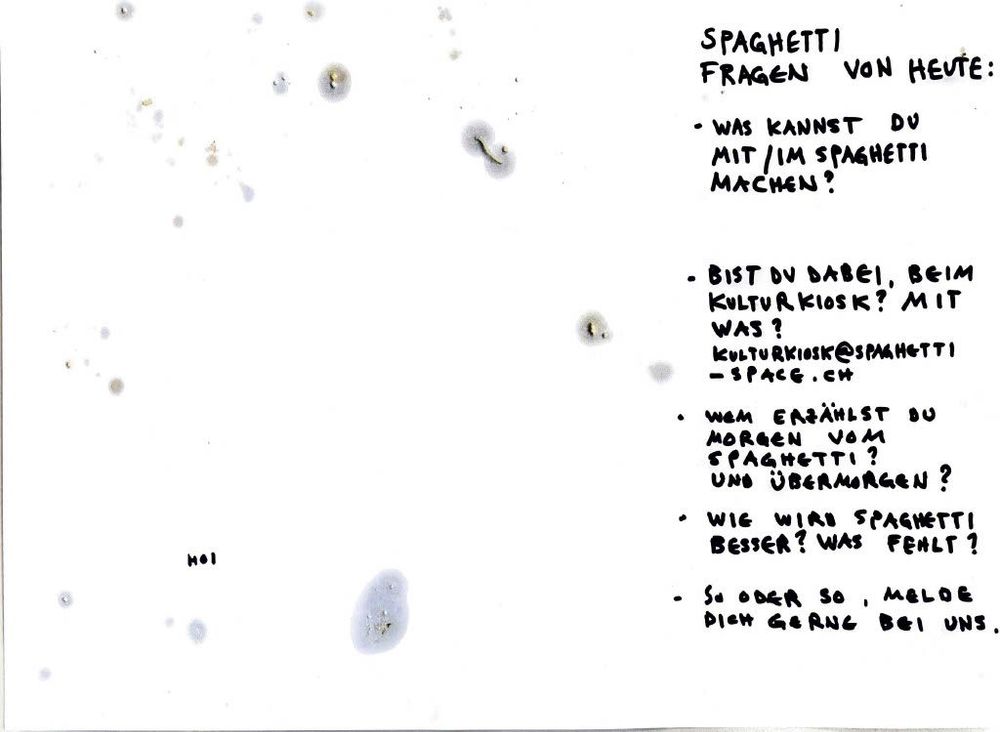 SPAGHETTI
FRAGEN VON HEUTE:
• WAS KANNST DU
MIT/IM SPAGHETTI
MACHEN?
• BIST DU DABEI, BEIM
KULTURKIOSK? MIT
WAS?
KULTURKIOSK@SPAGHETTI
-SPACE.CH
• WEM ERZÄHLST DU
MORGEN VOM
SPAGHETTI?
UND ÜBERMORGEN?
• WIE WIRD SPAGHETTI
BESSER? WAS FEHLT?
HOI
• SO ODER SO, MELDE
DICH GERNE BEI UNS.